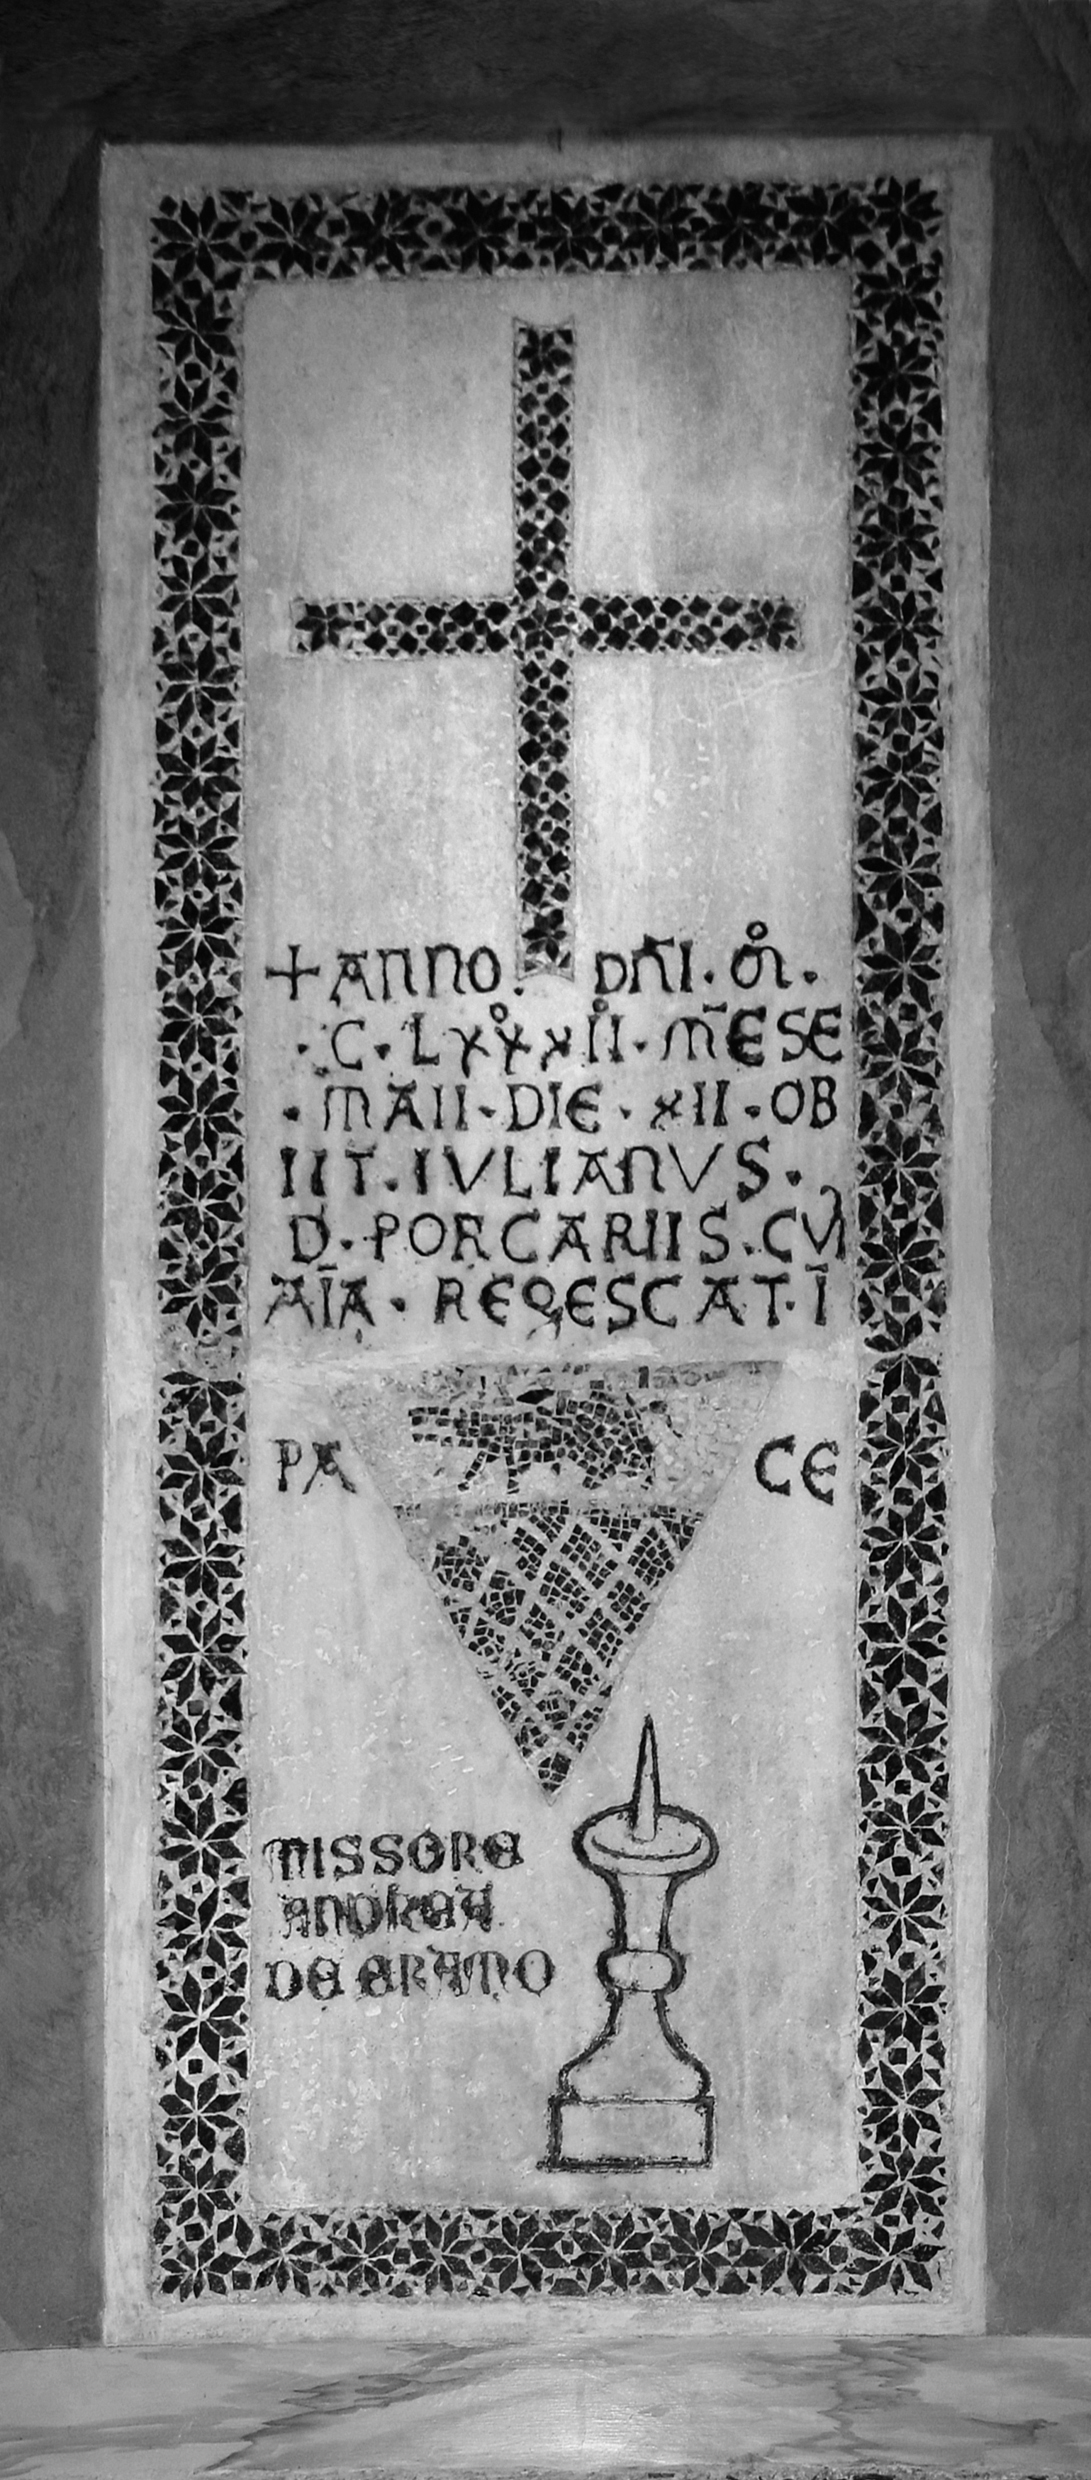 + ANNO. DN̄I. M̊.
· C · LXXX̊II̊ · M̄ESE
· MAII · DIE · XII · OB
IIT. IVLIANVS.
D. PORCARIIS. CVI
AĪA · REQESCAT. Ī
PA CE
MISSORE
ANDREA
DE ERAMO